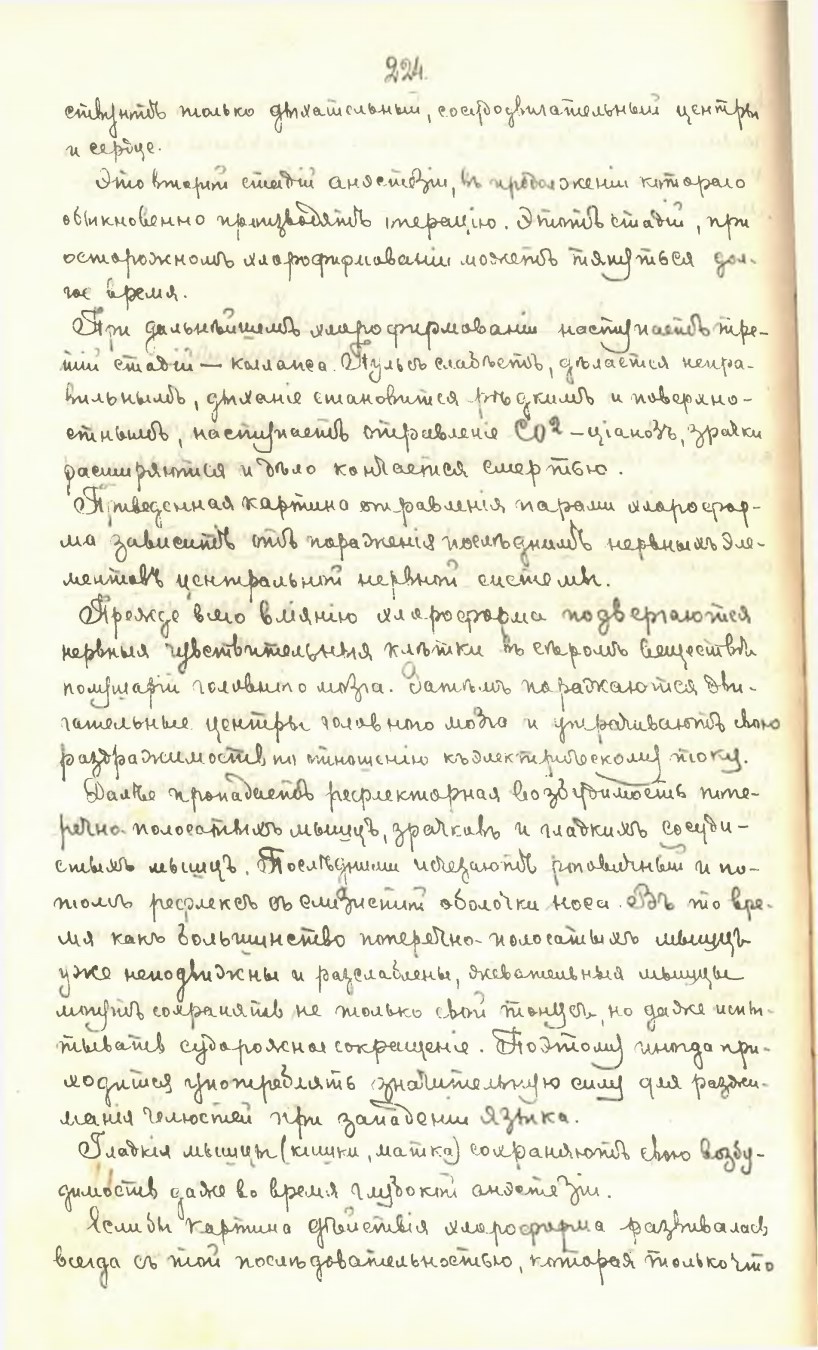 224.
ствуютъ только дыхательный, сосудодвигательный центры
и сердце.
Это второй стадій анэстезіи, въ продолженіи котораго
обыкновенно производятъ операцію. Этотъ стадій, при
осторожномъ хлороформованіи можетъ тянуться дол-
гое время.
При дальнѣйшемъ хлороформованіи наступаетъ тре-
тій стадій — коллапса. Пульсъ слабѣетъ, дѣлается непра-
вильнымъ, дыханіе становится рѣдкимъ и поверхно-
стнымъ, наступаетъ отравленіе CO² – ціанозъ, зрачки
расширяются и дѣло кончается смертью.
Приведенная картина отравленія парами хлорофор-
ма зависитъ отъ пораженія послѣднимъ нервныхъ эле-
ментовъ центральной нервной системы.
Прежде всего вліянію хлороформа подвергаются
нервныя чувствительныя клѣтки въ сѣромъ веществѣ
полушарій головного мозга. Затѣмъ поражаются дви-
гательные центры головного мозга и утрачиваютъ свою
раздражимость по отношенію къ электрическому току.
Далѣе пропадаетъ рефлекторная возбудимость попе-
речно-полосатыхъ мышцъ, зрачковъ и гладкихъ сосуди-
стыхъ мышцъ. Послѣдними исчезаютъ роговичный и по-
томъ рефлексъ съ слизистой оболочки носа. Въ то вре-
мя какъ большинство поперечно-полосатыхъ мышцъ
уже неподвижны и разслаблены, жевательныя мышцы
могутъ сохранять не только свой тонусъ, но даже испы-
тывать судорожное сокращеніе. Поэтому иногда при-
ходится употреблять значительную силу для разжи-
манія челюстей при западеніи языка.
Гладкія мышцы (кишки, матка) сохраняютъ свою возбу-
димость даже во время глубокой анэстезіи.
Если бы картина дѣйствія хлороформа развивалась
всегда съ той послѣдовательностью, которая только что